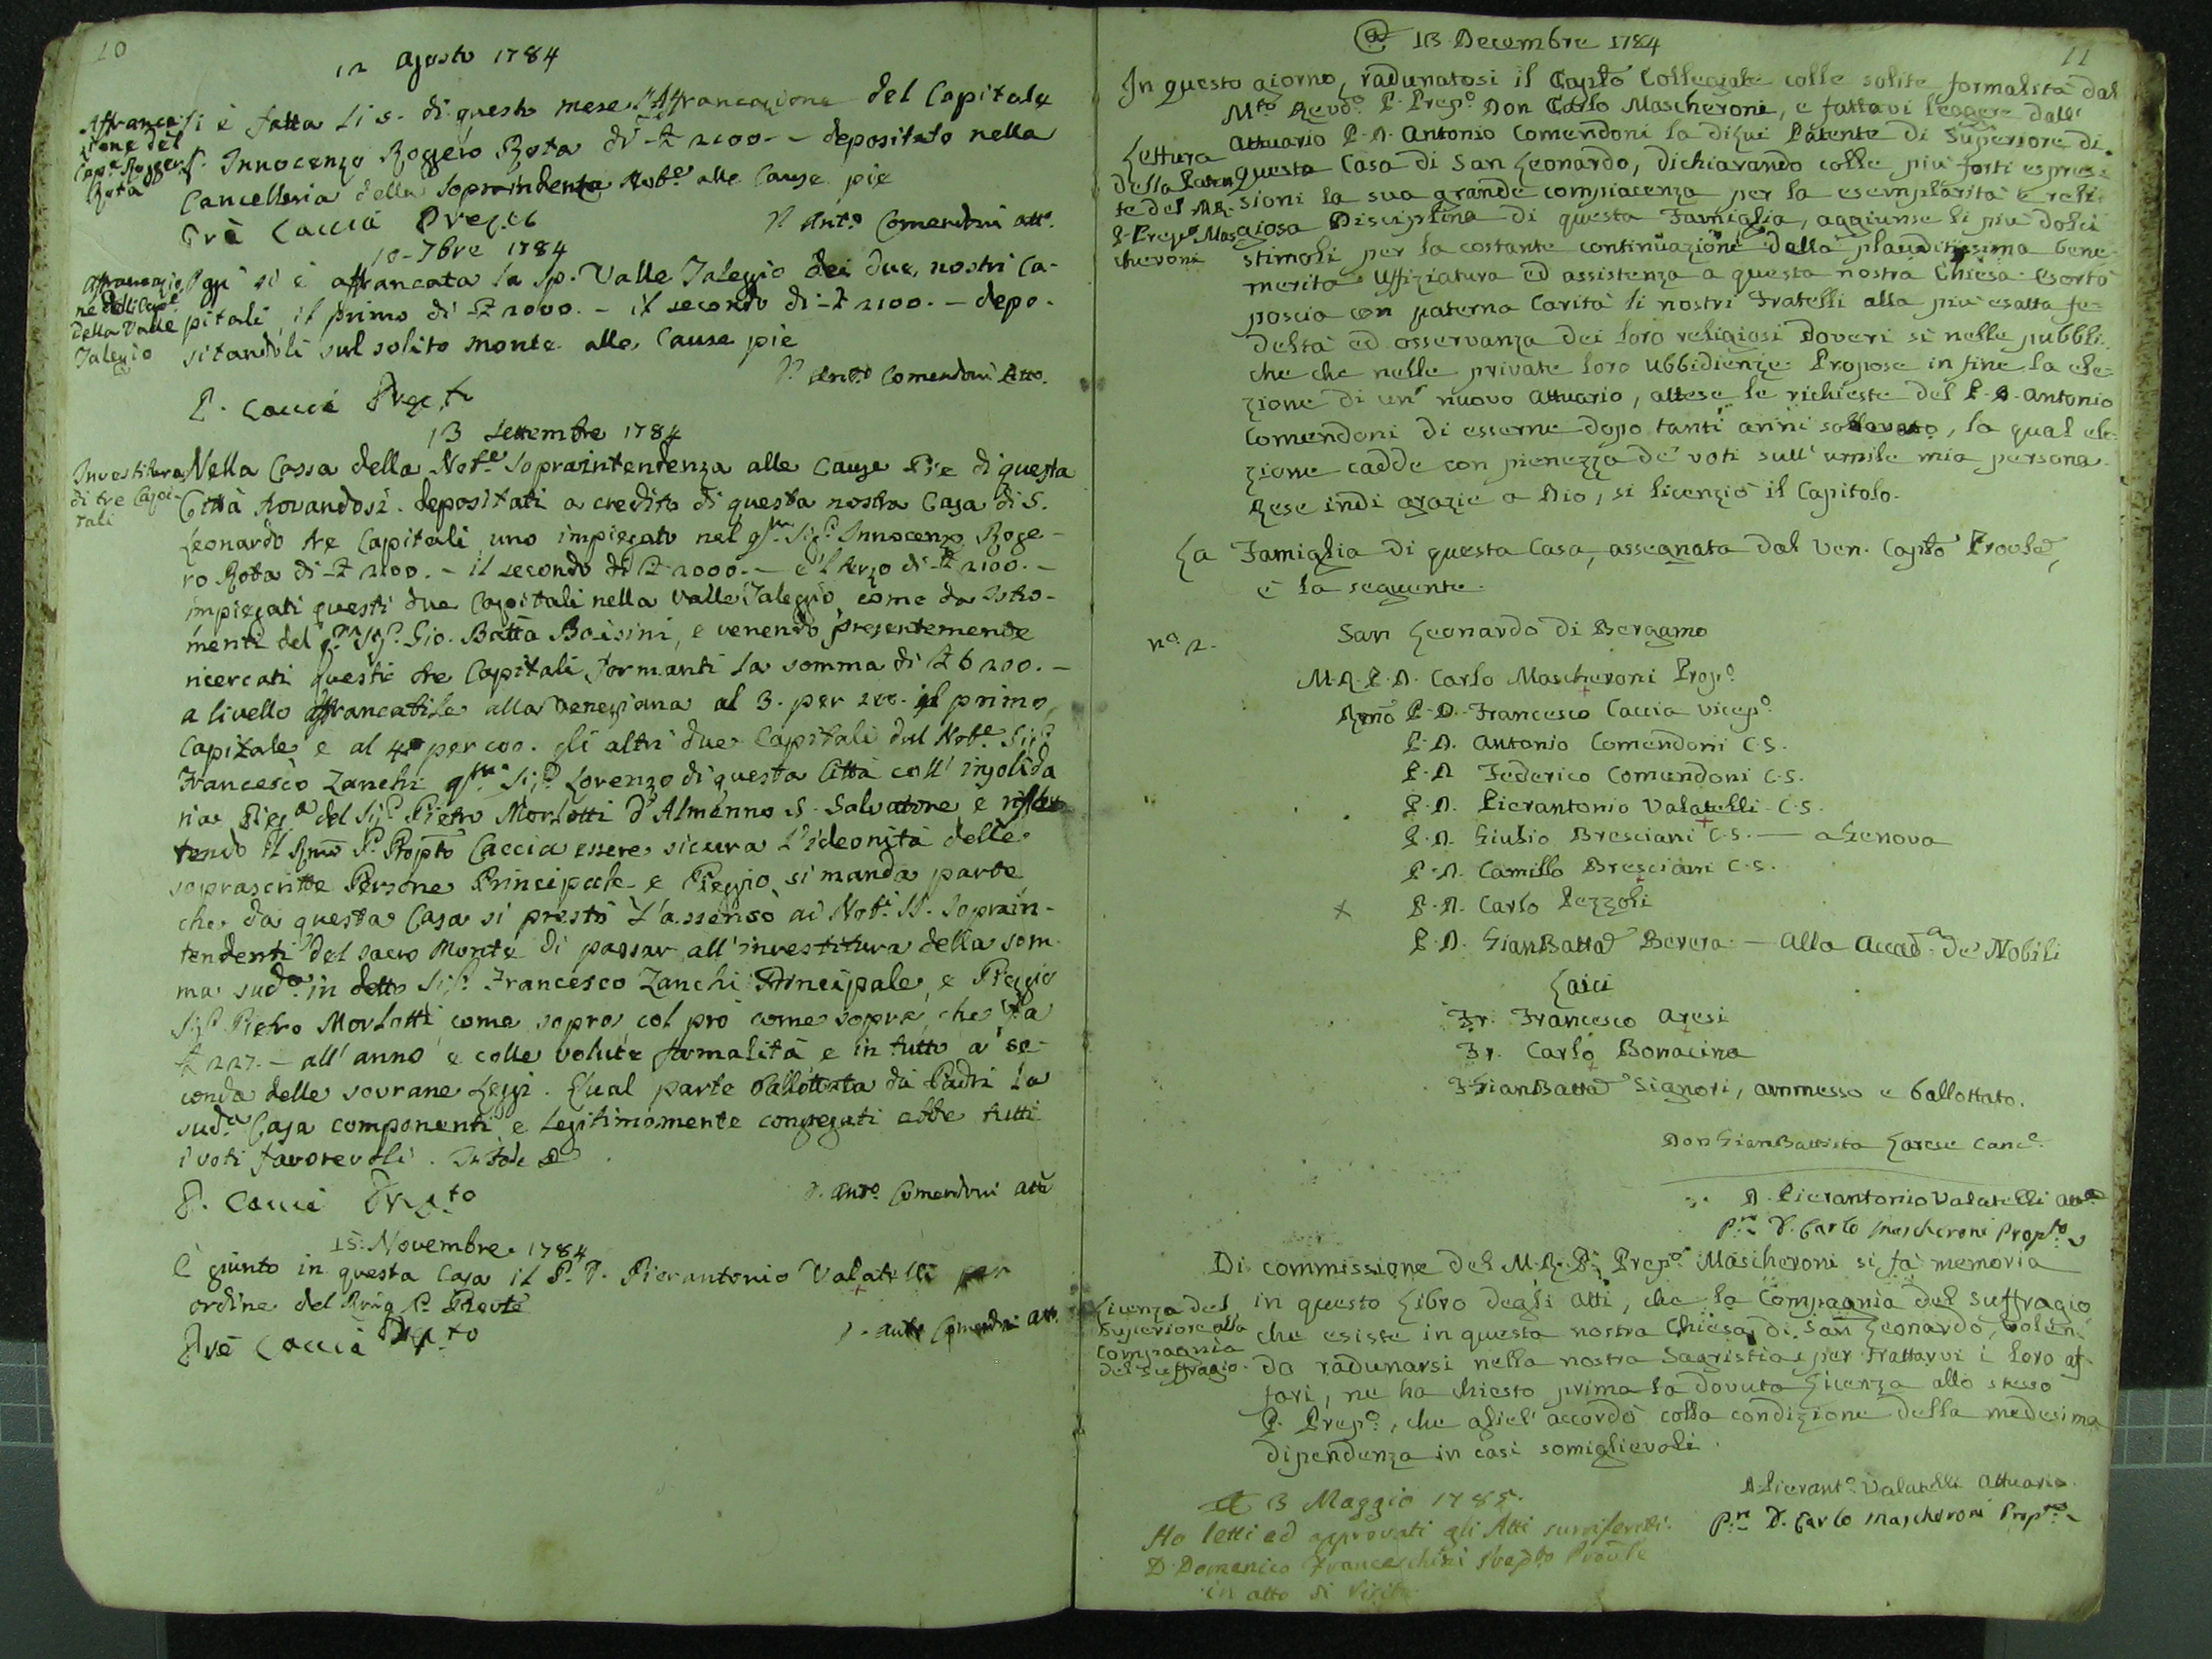 10
12 Agosto 1784
Affranca-
zione del
Cap.e Roggero
Rota
Si è fatta li 5. di questo mese l'Affrancazione del Capitale
S.r Innocenzo Roggero Rota di £ 2100. - depositato nella
Cancelleria della Sopraindenza Nob.e alle Cause pie
Pre Caccia Prep.to
P. Ant.o Comendoni att.o
10 - 7bre 1784
Affrancazio
ne delli Cap.li
della Valle
Taleggio
Oggi si è affrancata la Sp. Valle Taleggio dei due nostri Ca-
pitali, il primo di £ 2000. - il secondo di £ 2100. - depo-
sitandoli sul solito monte alle Cause pie
P. Ant.o Comendoni Att.o
P. Caccia Prep.to
13 Settembre 1784
Investitura
di tre Capi-
tali
Nella Cassa della Nob.e Sopraintendenza alle Cause Pie di questa
Città trovandosi depositati a credito di questa nostra Casa di S.
Leonardo tre Capitali uno impiegato nel q.m Sig.r Innocenzo Roge-
ro Rota di £ 2100. - il secondo di £ 2000. - e 'l terzo di £ 2100. -
impiegati questi due Capitali nella Valle Taleggio come da Istro-
menti del q.m Sig.r Gio. Batta Boisini, e venendo presentemente
ricercati questi tre Capitali formanti la somma di £ 6200. -
a livello affrancabile alla Veneziana al 3. per 100. il primo
Capitale e al 4 per 100. gli altri due Capitali dal Nob.e Sig.r
Francesco Zanchi q.m Sig.r Lorenzo di questa Città coll' insolida
ria Pieg.a del Sig.r Pietro Morlotti d'Almenno S. Salvatore, e riflet
tendo il Rmo P. Propto Caccia essere sicura l'ideonità delle
soprascritte Persone Principale e Pieggio, si manda parte
che da questa Casa si presti l'assenso ai Nob.i SS. Soprain-
tendenti del sacro Monte di passar all'investitura della som-
ma sud.a in detto Sig.r Francesco Zanchi Principale, e Pieggio
Sig.r Pietro Morlotti come sopra, col prò come sopra, che fa
£ 227. - all' anno e colle volute formalità e in tutto a se-
conda delle sovrane Leggi. Qual parte ballottata da Padri la
sud.a Casa componenti e legitimamente congregati ebbe tutti
i voti favorevoli. In fede
P. Caccia Prep.to
P. Ant.o Comendoni att.o
15: Novembre 1784
È giunto in questa Casa il P. D. Pierantonio Valatelli per
ordine del P. Prov.le
Pre Caccia Prep.to
P. Ant.o Comendoni att.o
11
13 Decembre 1784
In questo giorno, radunatosi il Caplo Collegiale colle solite formalità dal
M.to Revd.o P. Prep.o Don Carlo Mascheroni, e fattavi leggere dall'
Lettura
della Paten
te del M.R.
P. Prep.o Mas
cheroni
Attuario P. D. Antonio Comendoni la dilui Patente di Superiore di
questa Casa di San Leonardo, dichiarando colle più forti espres-
sioni la sua grande compiacenza per la esemplarità e reli-
giosa Disciplina di questa Famiglia, aggiunse li più dolci
stimoli per la costante continuazione della plauditissima bene-
merita Uffiziatura ed assistenza a questa nostra Chiesa. Esortò
poscia con paterna Carità li nostri Fratelli alla più esatta fe-
deltà ed osservanza dei loro religiosi Doveri sì nelle pubbli-
che che nelle private loro Ubbidienze. Propose in fine la ele-
zione di un' nuovo Attuario, attese le richieste del P. D. Antonio
Comendoni di esserne dopo tanti anni sollevato, la qual ele-
zione cadde con pienezza de' voti sull' umile mia persona.
Rese indi grazie a Dio, si licenziò il Capitolo.
La Famiglia di questa Casa, assegnata dal Ven. Caplo Provle,
è la seguente.
San Leonardo di Bergamo
n.o 2.
M.R.P.D. Carlo Mascheroni Prep.o
Rmo P. D. Francesco Caccia Vicep.o
P. D. Antonio Comendoni C.S.
P. D. Federico Comendoni C.S.
P. D. Pierantonio Valatelli C.S.
P. D. Giulio Bresciani C.S. — a Genova
P. D. Camillo Bresciani C.S.
x P. D. Carlo Pezzoli
P. D. GianBatta Bevera — alla Accad.a de' Nobili
Laici
Fr. Francesco Aresi
Fr. Carlo Bonacina
F. GianBatta Signori, ammesso e ballottato.
Don GianBattista Larese Canc.e
D. Pierantonio Valatelli att.o
P.re D. Carlo Mascheroni Prop.to
Di commissione del M.R.P. Prep.o Mascheroni si fà memoria
Licenza del
Superiore alla
Compagnia
del Suffragio
in questo Libro degli Atti, che la Compagnia del Suffragio
che esiste in questa nostra Chiesa di San Leonardo, volen-
do radunarsi nella nostra Sagristia per trattarvi i loro af-
fari, ne ha chiesto prima la dovuta Licenza allo stesso
P. Prep.o, che gliel' accordò colla condizione della medesima
dipendenza in casi somiglievoli.
D. Pierant.o Valatelli Attuario.
P.re D. Carlo Mascheroni Prop.to
13 Maggio 1785.
Ho letti ed approvati gli Atti surriferiti.
D. Domenico Franceschini Prep.to Prov.le
in atto di Visita